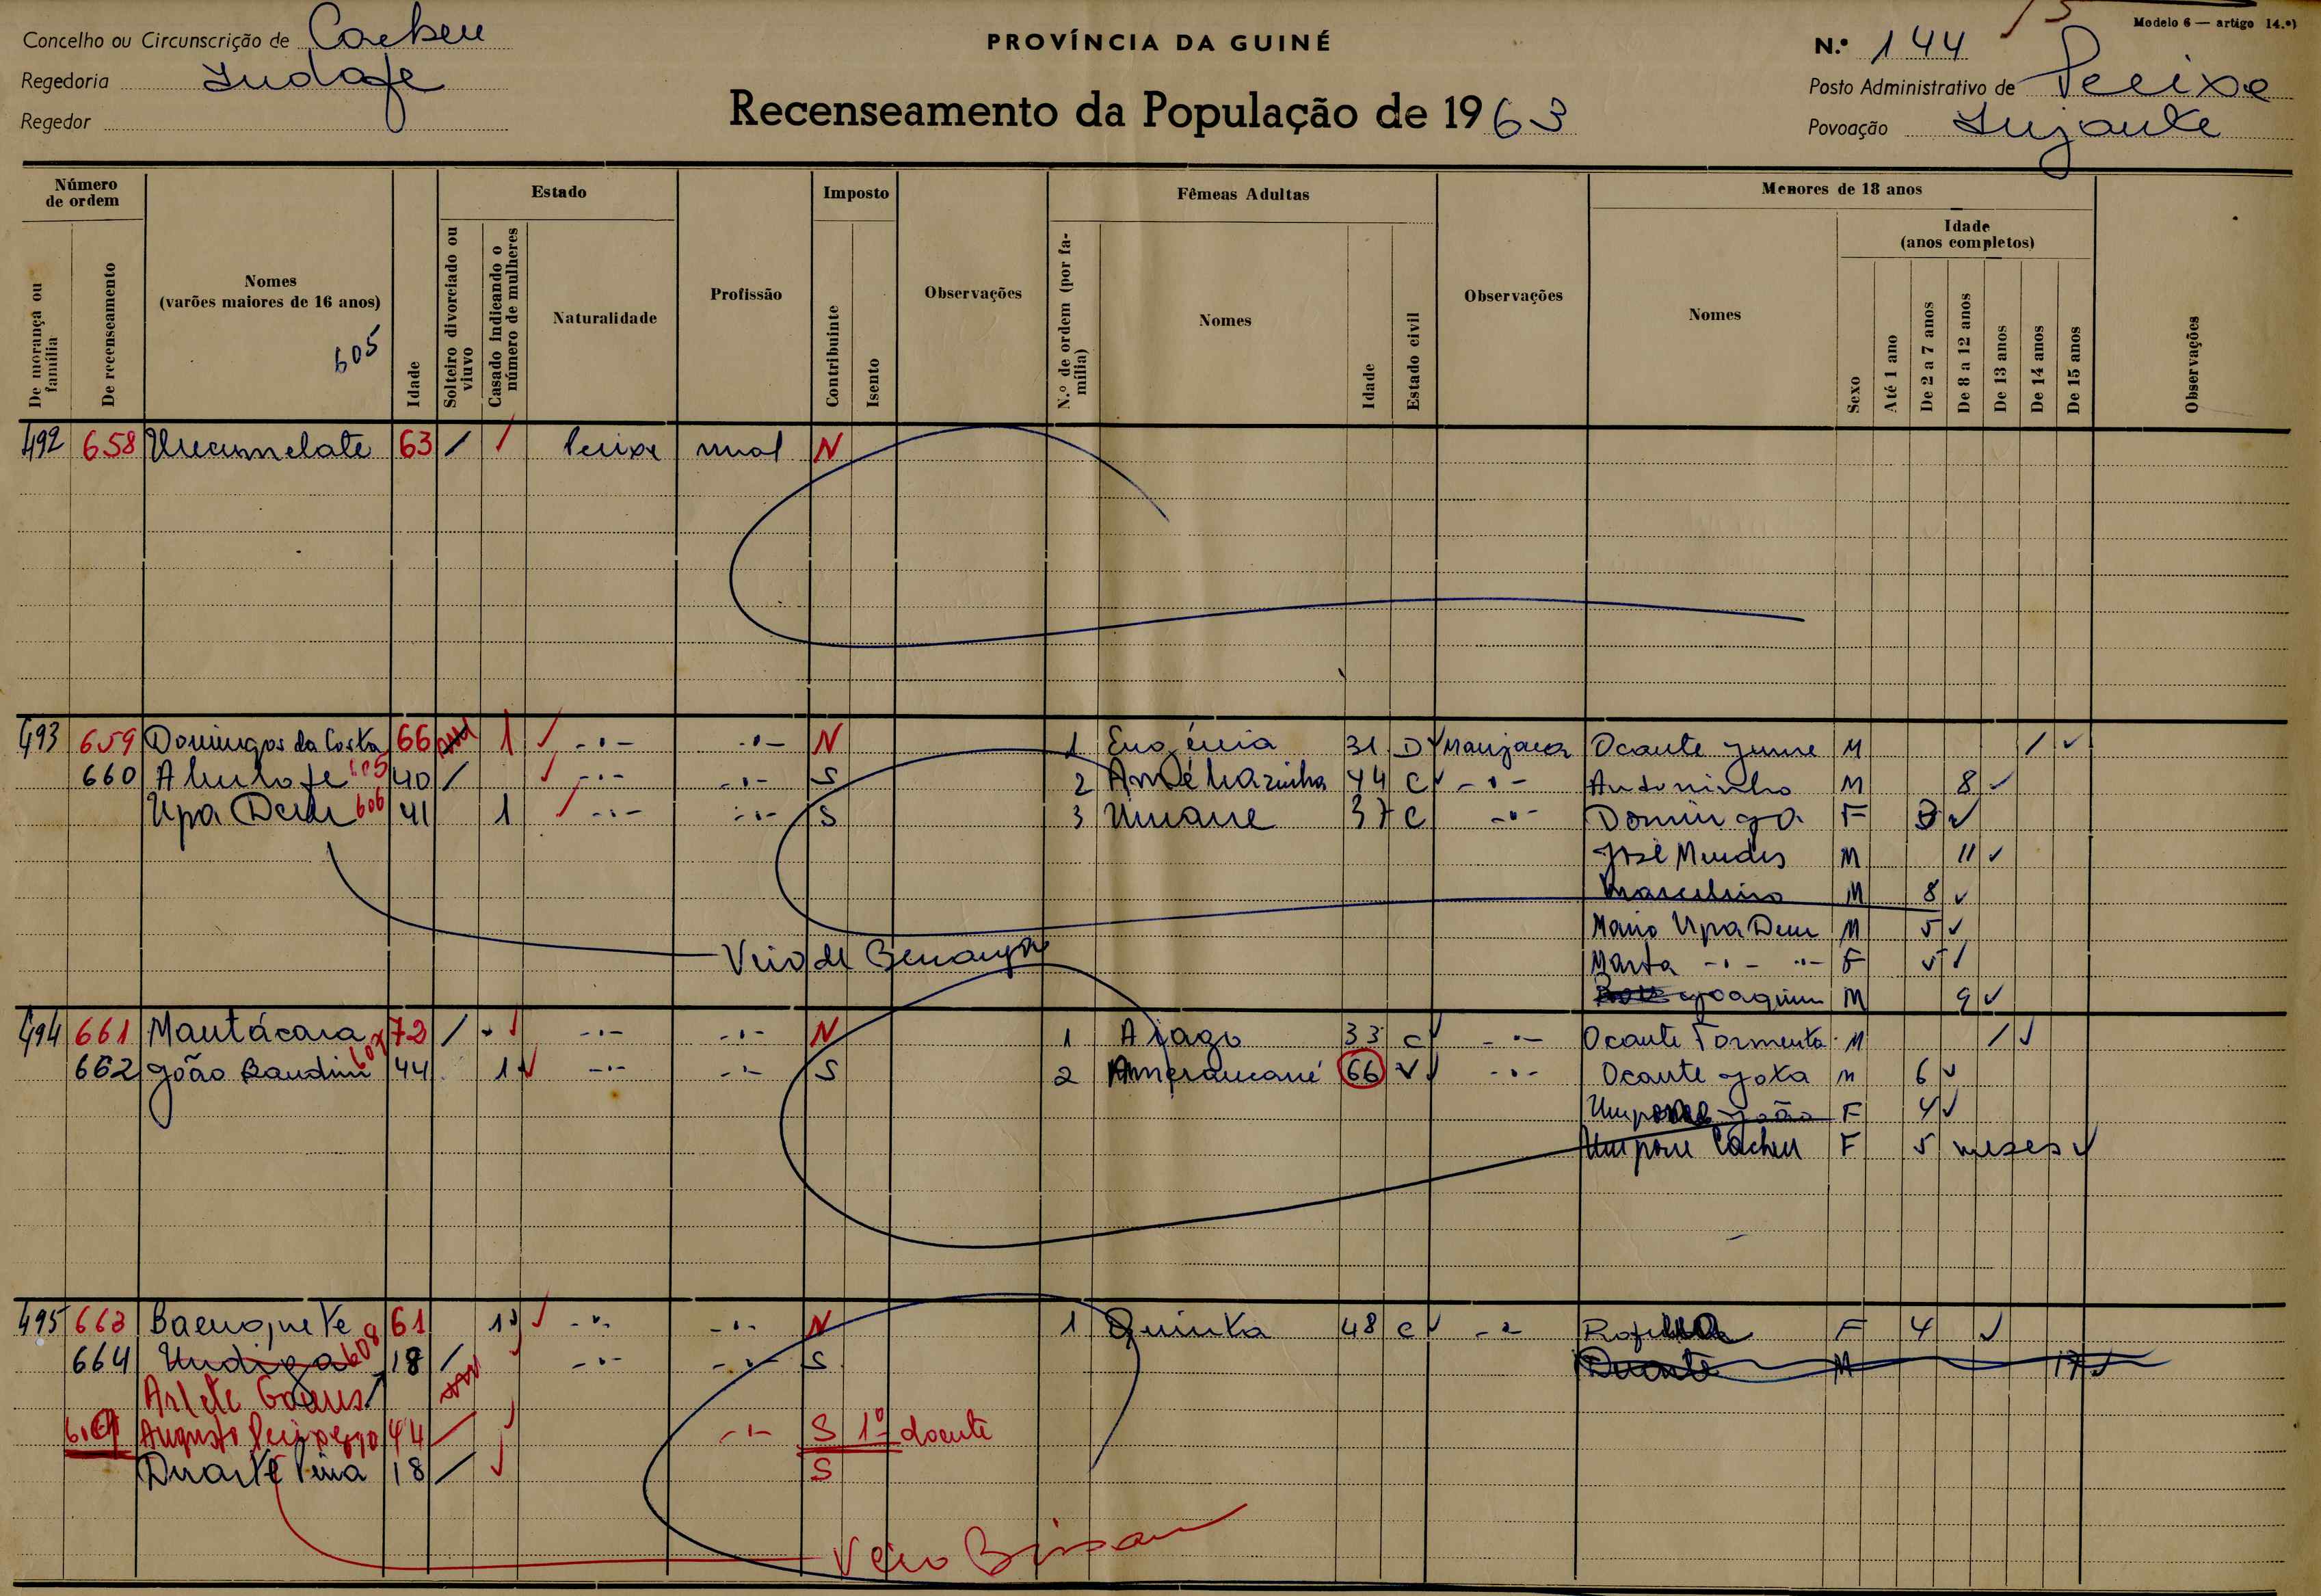 Modelo 6 — artigo 14.º)
Concelho ou Circunscrição de Cacheu
PROVÍNCIA DA GUINÉ
N.º 144
Regedoria Indafe
Posto Administrativo de Pecixe
Regedor
Recenseamento da População de 1963
Povoação
Número de ordem
Estado
Imposto
Fêmeas Adultas
Menores de 18 anos
Idade (anos completos)
De morança ou família
De recenseamento
Nomes (varões maiores de 16 anos)
605
Idade
Solteiro divorciado ou viuvo
Casado indicando o número de mulheres
Naturalidade
Profissão
Contribuinte
Isento
Observações
N.º de ordem (por família)
Nomes
Idade
Estado civil
Observações
Nomes
Sexo
Até 1 ano
De 2 a 7 anos
De 8 a 12 anos
De 13 anos
De 14 anos
De 15 anos
Observações
492 658 63 / / Pecixe rural N
493 659 Domingos da Costa 66 1 -·- -·- N 1 Eugénia 31 D Manjaca Ocante M /
660 605 40 / -·- -·- S 2 44 C -·- Antoninho M 8
Upa Deur 606 41 1 -·- -·- S 3 37 C -·- Dominga F 3
José Mendes M 11
Marcelino M 8
Mario Upa Deur M 5
Marta -·- -·- F 5
Joaquim M 9
Veio de
494 661 Mantácara 72 / - -·- -·- N 1 33 C -·- Ocante Tormenta M /
662 João 607 44 1 -·- -·- S 2 66 V -·- Ocante Jota M 6
João F 4
Cacheu F 5 meses
495 663 61 1 -·- -·- N 1 Quinta 48 C -·- F 4
664 608 18 / -·- -·- S Duarte M 17
Arlete Gomes
Augusto 44 / -·- S 1º doente
Duarte 18 / S
Veio Bissau